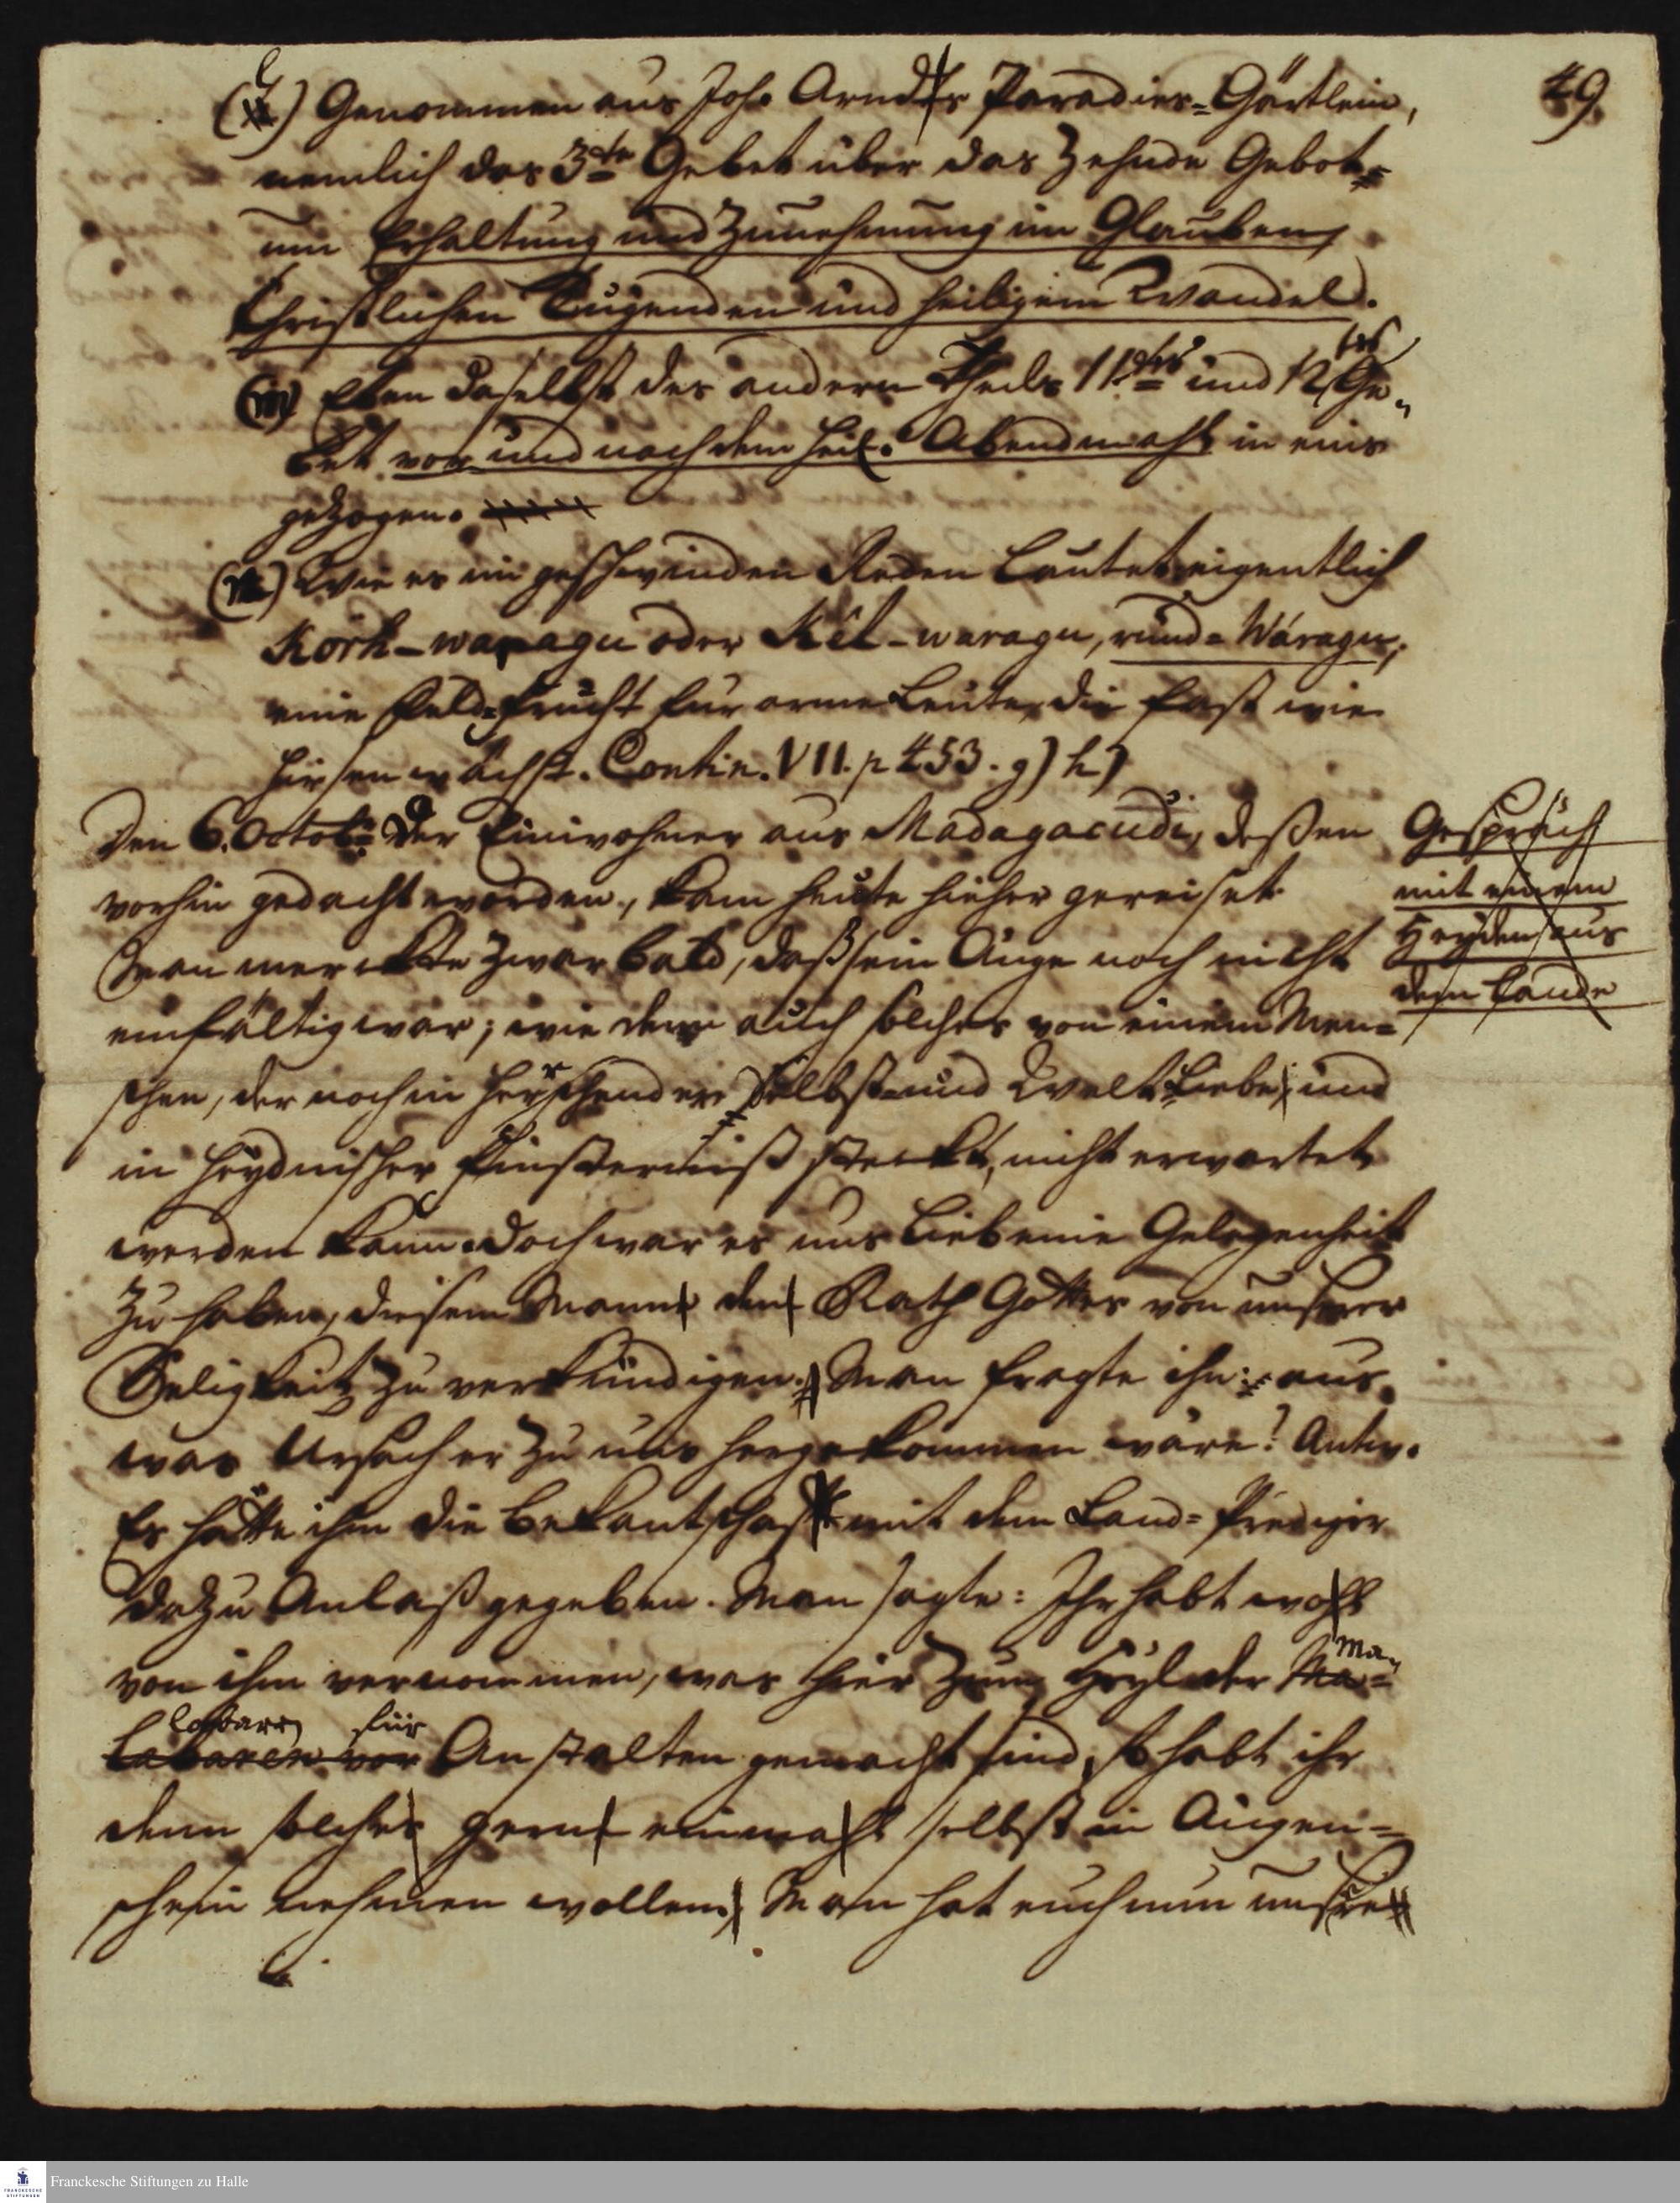 49.
(l) Genommen aus Joh. Arndts Paradies-Gärtlein,
nemlich das 3te Gebet über das zehnde Gebot
um Erhaltung und Zunehmung im Glauben,
Christlichen Tugenden und heiligem Wandel.
(m) Eben daselbst des andern Theils 11tes und 12tes Ge-
bet vor und nach dem heil. Abendmahl in eins
gezogen.
(n) Wie es im geschwinden Reden lautet eigentlich
Körh-waragu oder Kêl-waragu, rund-Wáragu,
eine Feld-Frucht für arme Leute, die fast wie
Hirsen wächst. Contin. VII. p 453. g) h)
Den 6. Octobr. Der Einwohner aus Madagacudi, deßen
vorhin gedacht worden, kam heute hieher gereiset.
Man merckte zwar bald, daß sein Auge noch nicht
einfältig war; wie denn auch solches von einem Men-
schen, der noch in herrschender Selbst- und Welt-Liebe, und
in heydnischer Finsterniß steckt, nicht erwartet
werden kann. Doch war es uns lieb eine Gelegenheit
zu haben, diesem Mann den Rath Gottes von unserer
Seligkeit zu verkündigen. Man fragte ihn: aus
was Ursach er zu uns hergekommen wäre? Antw.
Es hätte ihm die Bekantschaft mit dem Land-Prediger
dazu Anlaß gegeben. Man sagte: Ihr habt wohl
von ihm vernommen, was hier zum Heyl der Ma-
Ma-
labaren für
labaren vor Anstalten gemacht sind, so habt ihr
denn solches gern einmahl selbst in Augen-
schein nehmen wollen. Man hat euch nun unsre
Gespräch
mit einem
Heyden aus
dem Lande
Franckesche Stiftungen zu Halle